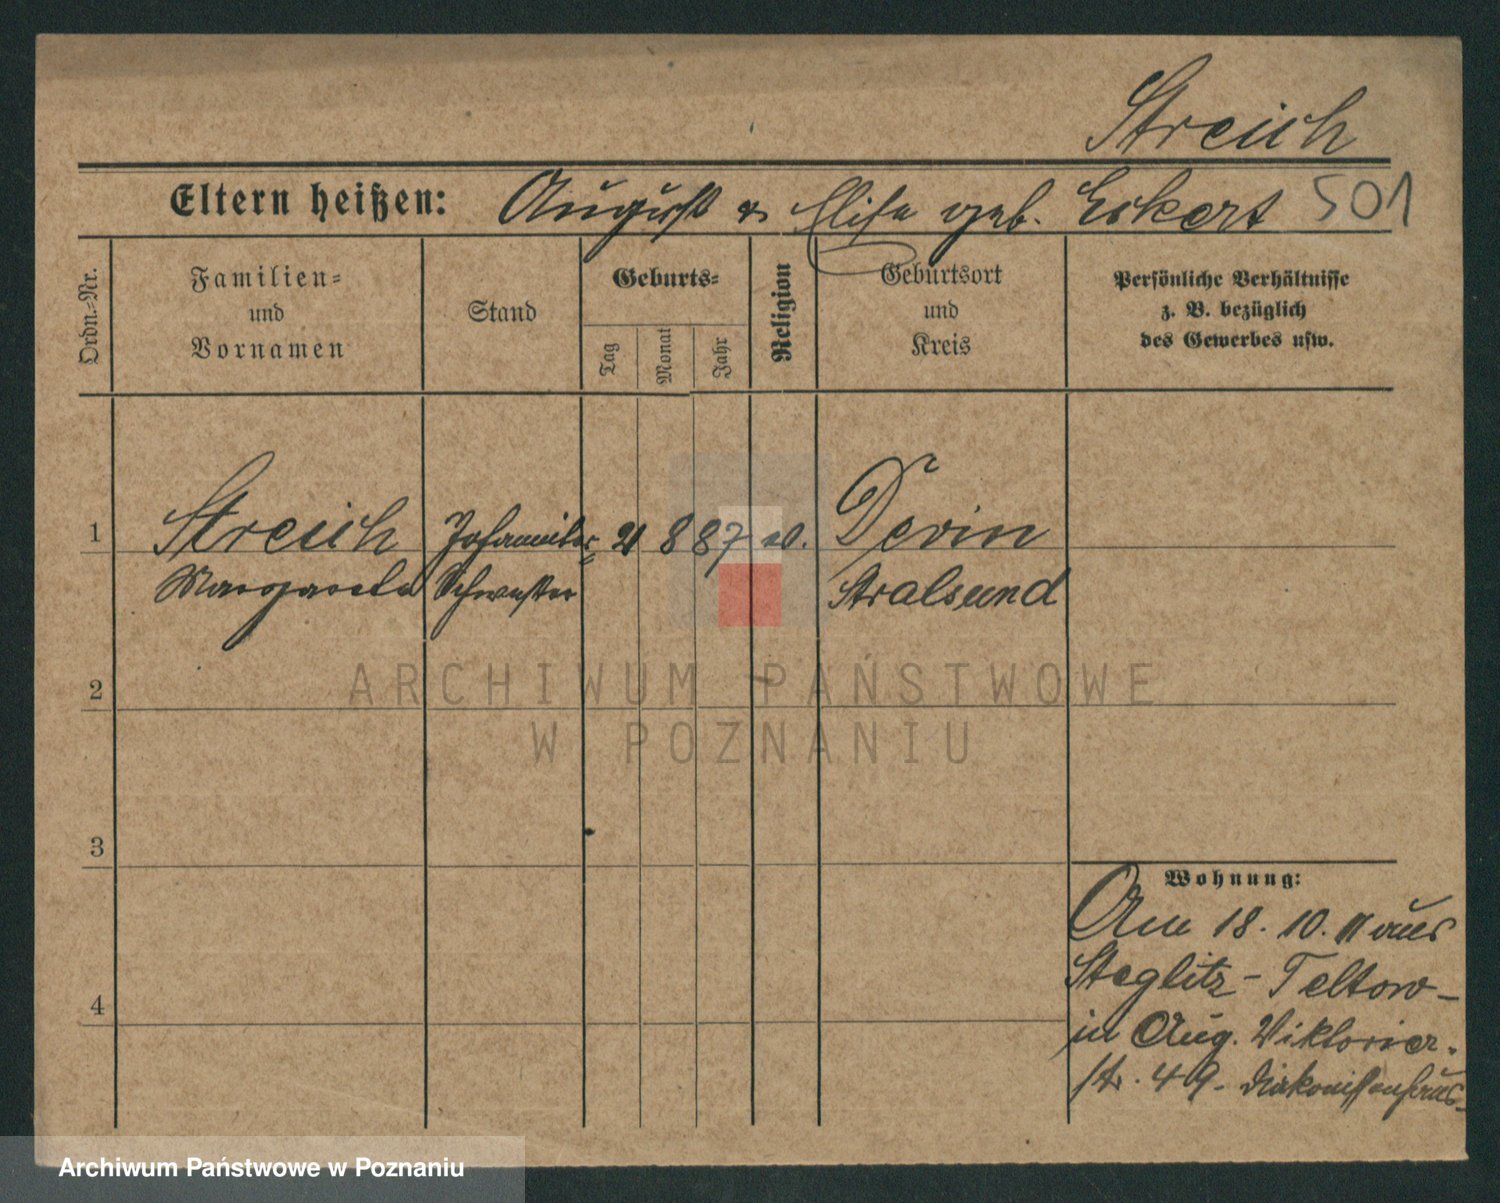 Streich
Eltern heißen: August & Elise geb. Eckert 501
Ordn.-Nr.
Familien-
und
Vornamen
Stand
Geburts-
Tag
Monat
Jahr
Religion
Geburtsort
und
Kreis
Persönliche Verhältnisse
z. B. bezüglich
des Gewerbes usw.
1 Streich Johanniter- 21 8 87 ev. Devin
Margarete Schwester Stralsund
2
ARCHIWUM PAŃSTWOWE
W POZNANIU
3
Wohnung:
Am 18. 10. 11 aus
Steglitz-Teltow-
4
in Aug. Viktoriar.
str. 49. Diakonissenhaus-
Archiwum Państwowe w Poznaniu